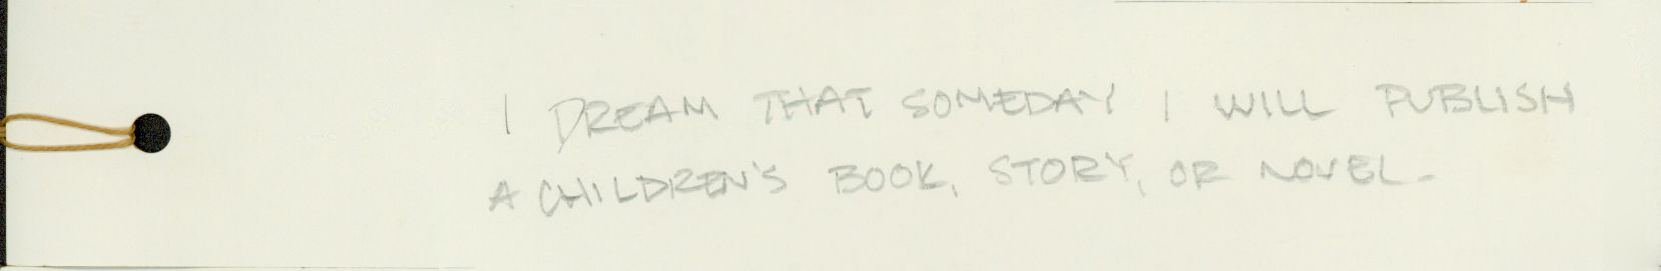 I DREAM THAT SOMEDAY I WILL PUBLISH
A CHILDREN'S BOOK, STORY, OR NOVEL.